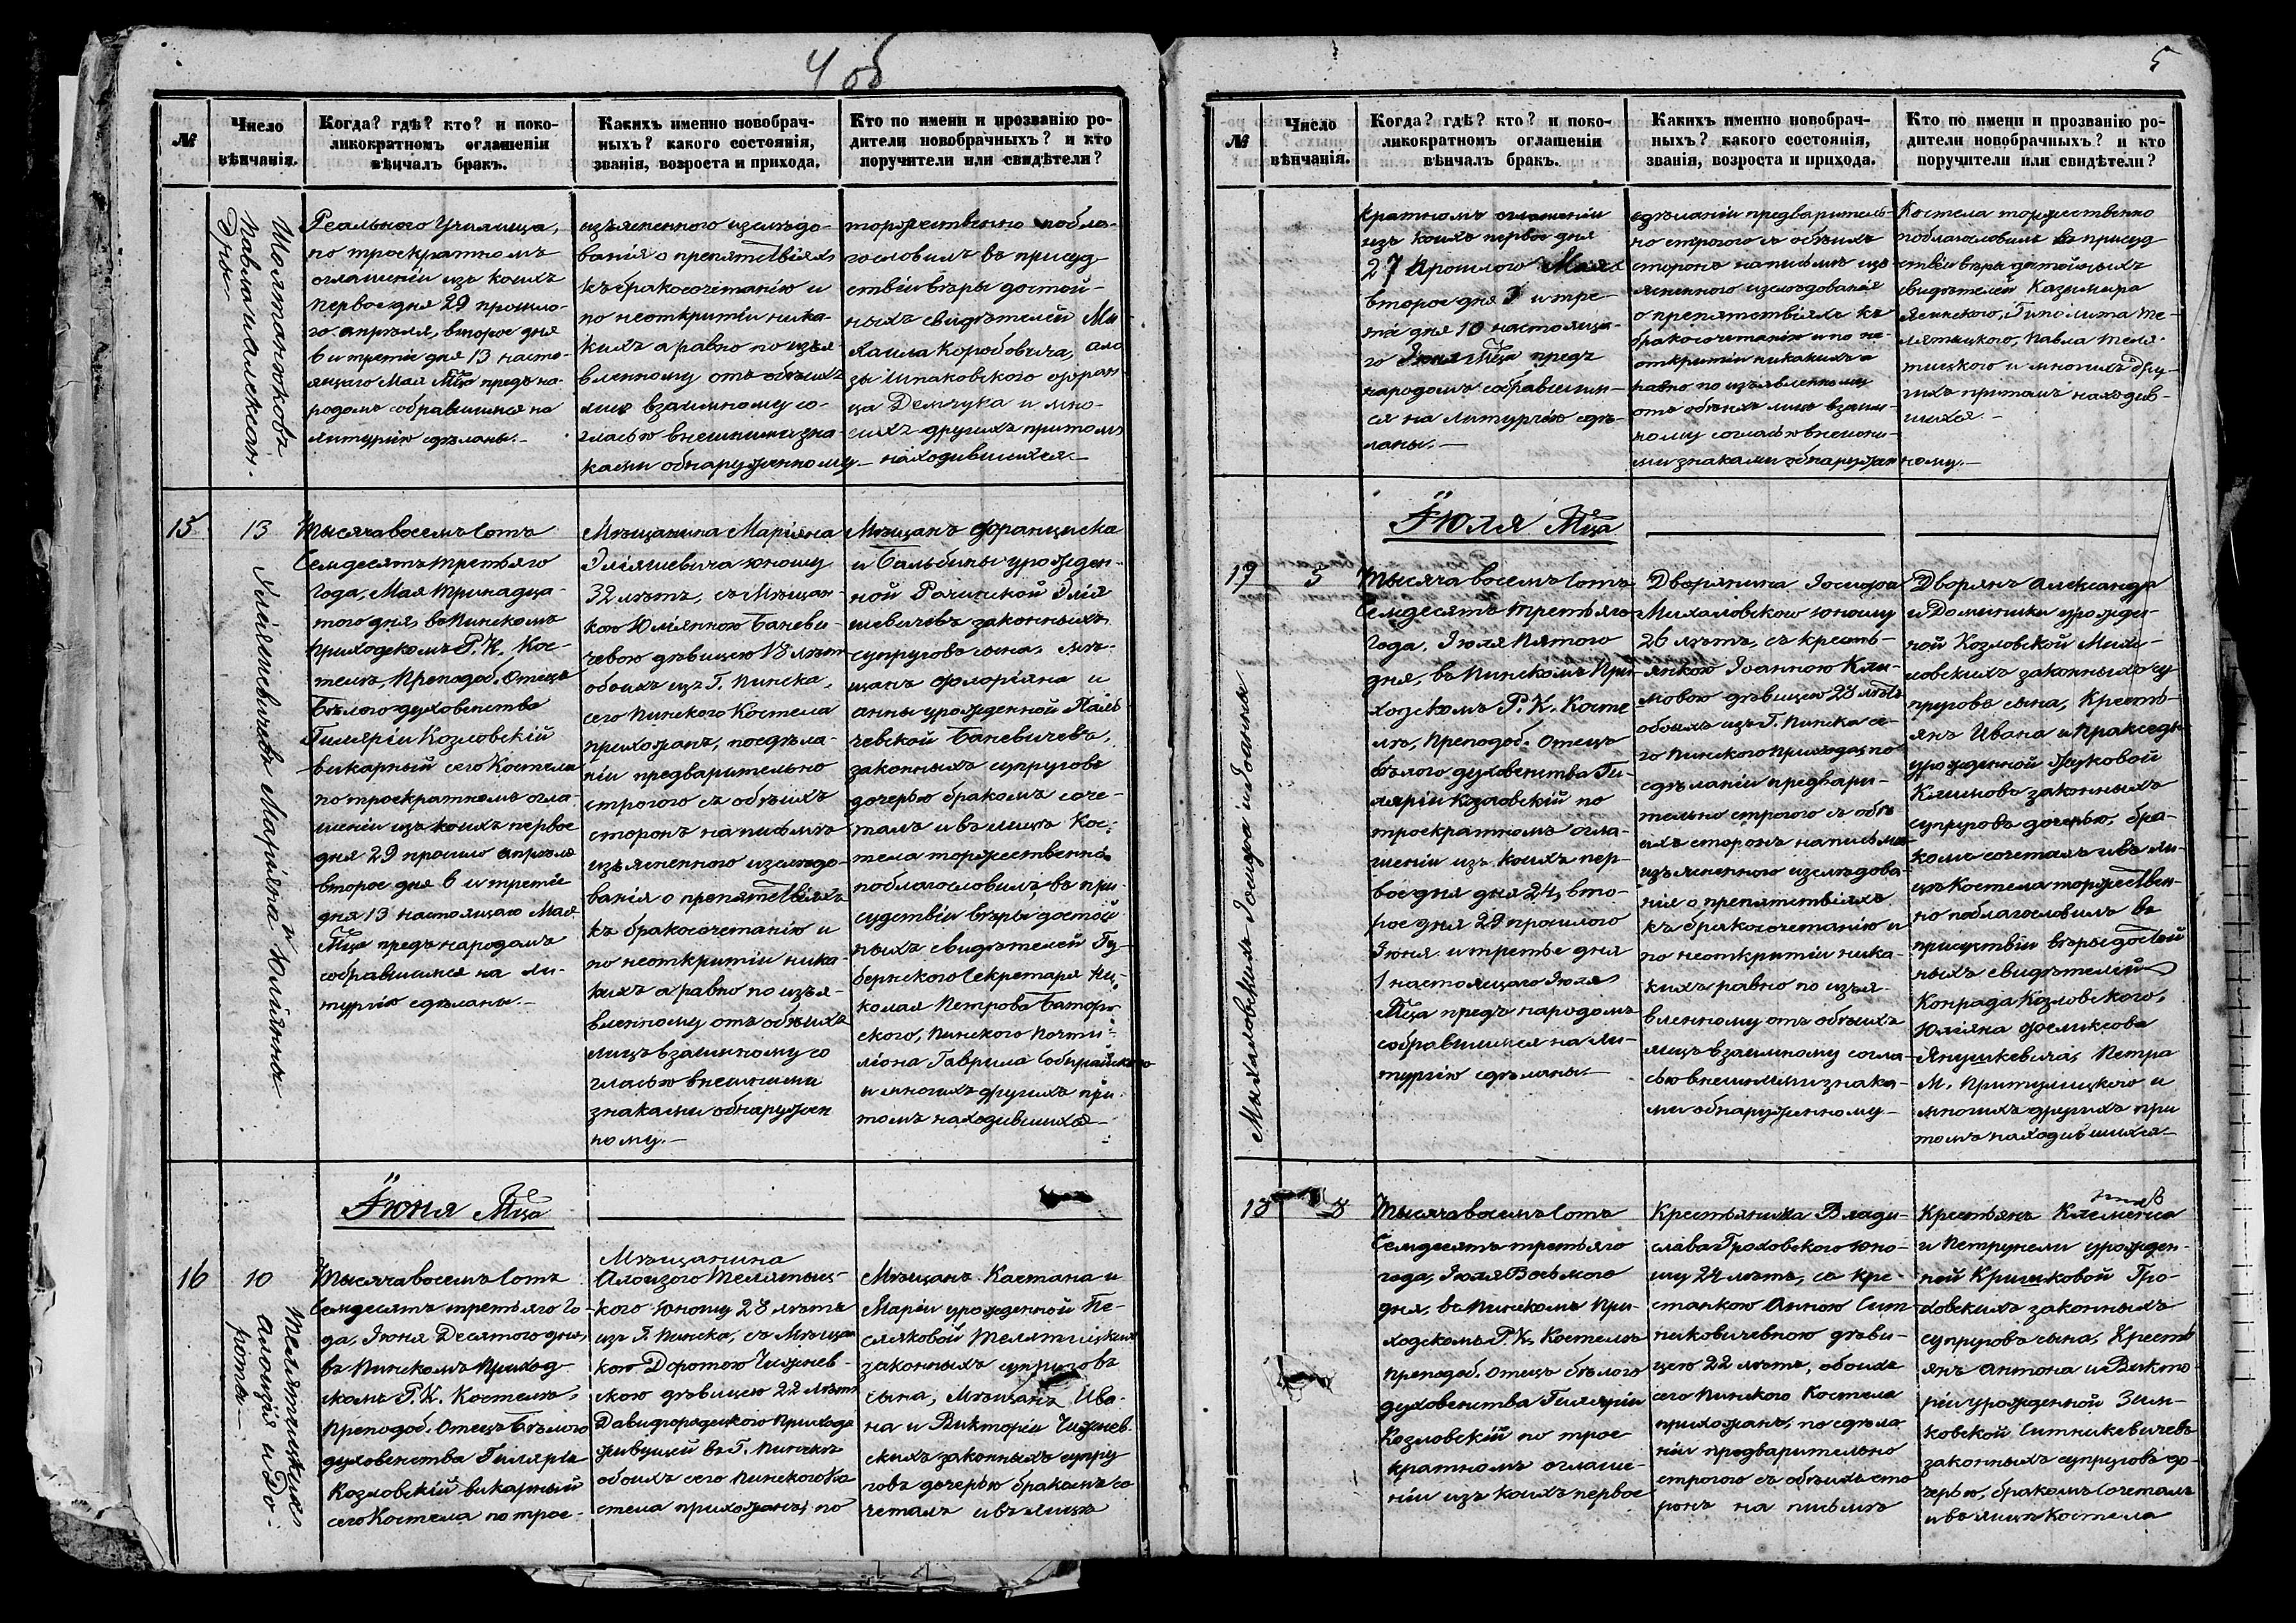 4 об
№
Число
вѣнчанія.
Когда? гдѣ? кто? и поко-
ликократномъ оглашеніи
вѣнчалъ бракъ.
Какихъ именно новобрач-
ныхъ? какого состоянія,
званія, возроста и прихода.
Кто по имени и прозванію ро-
дители новобрачныхъ? и кто
поручители или свидѣтели?
Реального Училища,
по троекратномъ
оглашеніи изъ коихъ
первое дня 29 прошло-
го апрѣля, второе дня
6 и третіе дня 13 насто-
ящаго Мая Мца предъ на-
родомъ собравшимся на
литургію сдѣланы.—
изъясненного изслѣдо-
ванія о препятствіяхъ
къ бракосочетанію и
по неоткрытіи ника-
кихъ а равно по изъя-
вленному отъ обѣихъ
лицъ взаимному со-
гласью внешними зна-
ками обнаруженному—
торжественно побла-
гословилъ въ присуд
ствіи вѣры достой-
ныхъ свидѣтелей Ми-
хаила Коробовича, ало
зы Шпаковского фран
ца Демчука и мно-
гихъ другихъ притомъ
находившихся.—
15
13
Эліяшевичевъ Маріяна и Юліянны
Тысяча восемъ Сотъ
Семдесятъ третьяго
Года, Мая Тринадца-
того дня, въ Пинскомъ
Приходскомъ Р. К. Кос-
телѣ, Преподоб. Отецъ
Бѣлого духовенства
Гилярій Козловскій
викарный сего Костела
по троекратномъ огла-
шеніи изъ коихъ первое
дня 29 прошло апрѣля
второе дня 6 и третіе
дня 13 настоящаго Мая
Мца предъ народомъ
собравшимся на ли-
тургію сдѣланы.—
Мѣщанина Маріяна
Эліяшевича юношу
32 лѣтъ, съ Мѣщан-
кою Юліянною Баневи-
чевою дѣвицею 18 лѣтъ
обоихъ изъ Г. Пинска,
сего Пинского Костела
прихожанъ, по сдѣла-
ніи предварительно
строгого съ обѣихъ
сторонъ на письмѣ
изъясненного изслѣдо-
ванія о препятствіяхъ
къ бракосочетанію и
по неоткрытіи ника-
кихъ а равно по изъя-
вленному отъ обѣихъ
лицъ взаимному со
гласью внешними
знаками обнаружен
ному.—
Мѣщанъ Франциска
и Бальбины урожден-
ной Рачинской Элія
шевичевъ законныхъ
супруговъ сына, мѣ-
щанъ Флоріяна и
анны урожденной Паль
чевской Баневичевъ,
законныхъ супруговъ
дочерью бракомъ соче-
талъ и въ лицѣ Кос-
тела торжественно
поблагословилъ, въ при-
судствіи вѣры достой
ныхъ свидѣтелей Гу-
бернского Секретаря Ни-
колая Петрова
ского, Пинского Почти-
ліона Гаврила
и многихъ другихъ при
томъ находившихся—
Іюня Мца
16
10
Телятицкихъ
Алоизія и До-
роты—
Тысяча восемъ Сотъ
Семдесятъ третьяго Го-
да, Іюня Десятого дня,
въ Пинскомъ Приход
скомъ Р. К. Костелѣ,
Преподоб. Отецъ Бѣлого
духовенства Гилярій
Козловскій викарный
сего Костела по трое-
Мѣщанина
Алоизого Телятыц-
кого юношу 28 лѣтъ
изъ Г. Пинска, съ Мѣщан
кою Доротою Чижев-
скою дѣвицею 22 лѣтъ
Давидгородецкого Прихода
живущей въ Г. Пинскѣ
обоихъ сего Пинского Ко
стела прихожанъ, по
Мѣщанъ Каетана и
Маріи урожденной Пе-
сляковой Телятицкихъ
законныхъ супруговъ
сына, Мѣщанъ Ива-
на и Викторіи Чижев-
скихъ законныхъ супру
говъ дочерью бракомъ со
четалъ и въ лицѣ
5
№
Число
вѣнчанія.
Когда? гдѣ? кто? и поко-
ликократномъ оглашеніи
вѣнчалъ бракъ.
Какихъ именно новобрач-
ныхъ? какого состоянія,
званія, возроста и прихода.
Кто по имени и прозванію ро-
дители новобрачныхъ? и кто
поручители или свидѣтели?
кратномъ оглашеніи
изъ коихъ первое дня
27 Прошлого Мая
второе дня 3 и тре-
тіе дня 10 настояща-
го Іюня Мца предъ
народомъ собравшим-
ся на литургію сдѣ-
ланы.—
сдѣланіи предваритель-
но строгого съ обѣихъ
сторонъ на письмѣ изъ-
ясненного изслѣдованія
о препятствіяхъ къ
бракосочетанію и по не-
открытіи никакихъ а
равно по изъявленному
отъ обѣихъ лицъ взаим-
ному согласью внешни-
ми знаками обнаружен ному.—
Костела торжественно
поблагословилъ въ присуд
ствіи вѣры достойныхъ
свидѣтелей Казимира
Ясинского, Гиполита Те-
лятицкого, Павла Теля-
тицкого и многихъ дру-
гихъ притомъ находив-
шихся.—
Іюля Мца
17
5
Михаловскихъ Іосифа и Іоанны
Тысяча восемъ Сотъ
Семдесятъ третьяго
Года, Іюля Пятого
дня, въ Пинскомъ При-
ходскомъ Р. К. Косте
лѣ, Преподоб. Отецъ
бѣлого духовенства Ги-
лярій Козловскій по
троекратномъ огла-
шеніи изъ коихъ пер-
вое дня дня 24, вто-
рое дня 29 прошлого
Іюня и третье дня
1 настоящаго Іюля
Мца предъ народомъ
собравшимся на ли-
тургію сдѣланы.—
Дворянина Іосифа
Михаловского юношу
26 лѣтъ, съ кресть-
янкою Іоанною Кли-
мовою дѣвицею 23 лѣтъ
обоихъ изъ Г. Пинска се-
го Пинского Прихода, по
сдѣланіи предвари-
тельно строгого съ обѣ
ихъ сторонъ на письмѣ
изъясненного изслѣдова-
нія о препятствіяхъ
къ бракосочетанію и
по неоткрытіи ника-
кихъ равно по изъя-
вленному отъ обѣихъ
лицъ взаимному согла-
сью внешними знака-
ми обнаруженному—
Дворянъ Александра
и Доминики урожде-
ной Козловской Миха-
ловскихъ законныхъ су
пруговъ сына, Кресть-
янъ Ивана и Праксед
урожденной Жуковой
Климовъ законныхъ
супруговъ дочерью, бра-
комъ сочеталъ и въ ли-
цѣ Костела торжествен-
но поблагословилъ въ
присутствіи вѣры достой
ныхъ свидѣтелей
Конрада Козловского,
Юліяна Феликсова
Янушкевича, Петра
М. Притулицкого и
многихъ другихъ при
томъ находившихся—
18
8
Тысяча восемъ Сотъ
Семдесятъ третьяго
года, Іюля Восьмого
дня, въ Пинскомъ При-
ходскомъ Р. К. Костелѣ
Преподоб. Отецъ бѣлого
духовенства Гилярій
Козловскій по трое
кратномъ оглаше-
ніи изъ коихъ первое
Крестьянина Влади-
слава Гроховского юно-
шу 24 лѣтъ, съ кре-
стянкою Анною Сит-
никовичевною дѣви-
цею 22 лѣтъ, обоихъ
сего Пинского Костела
прихожанъ, по сдѣла
ніи предварительно
строгого съ обѣихъ сто
ронъ на письмѣ
Крестьянъ Клеменса
и Петрунели урожден-
ной Кришковой Гро-
ховскихъ законныхъ
супруговъ сына, Кресть
янъ Антона и Викто-
ріи урожденной Зин-
ковской Ситникевичевъ
законныхъ супруговъ до-
черью, бракомъ Сочеталъ
и въ лицѣ Костела